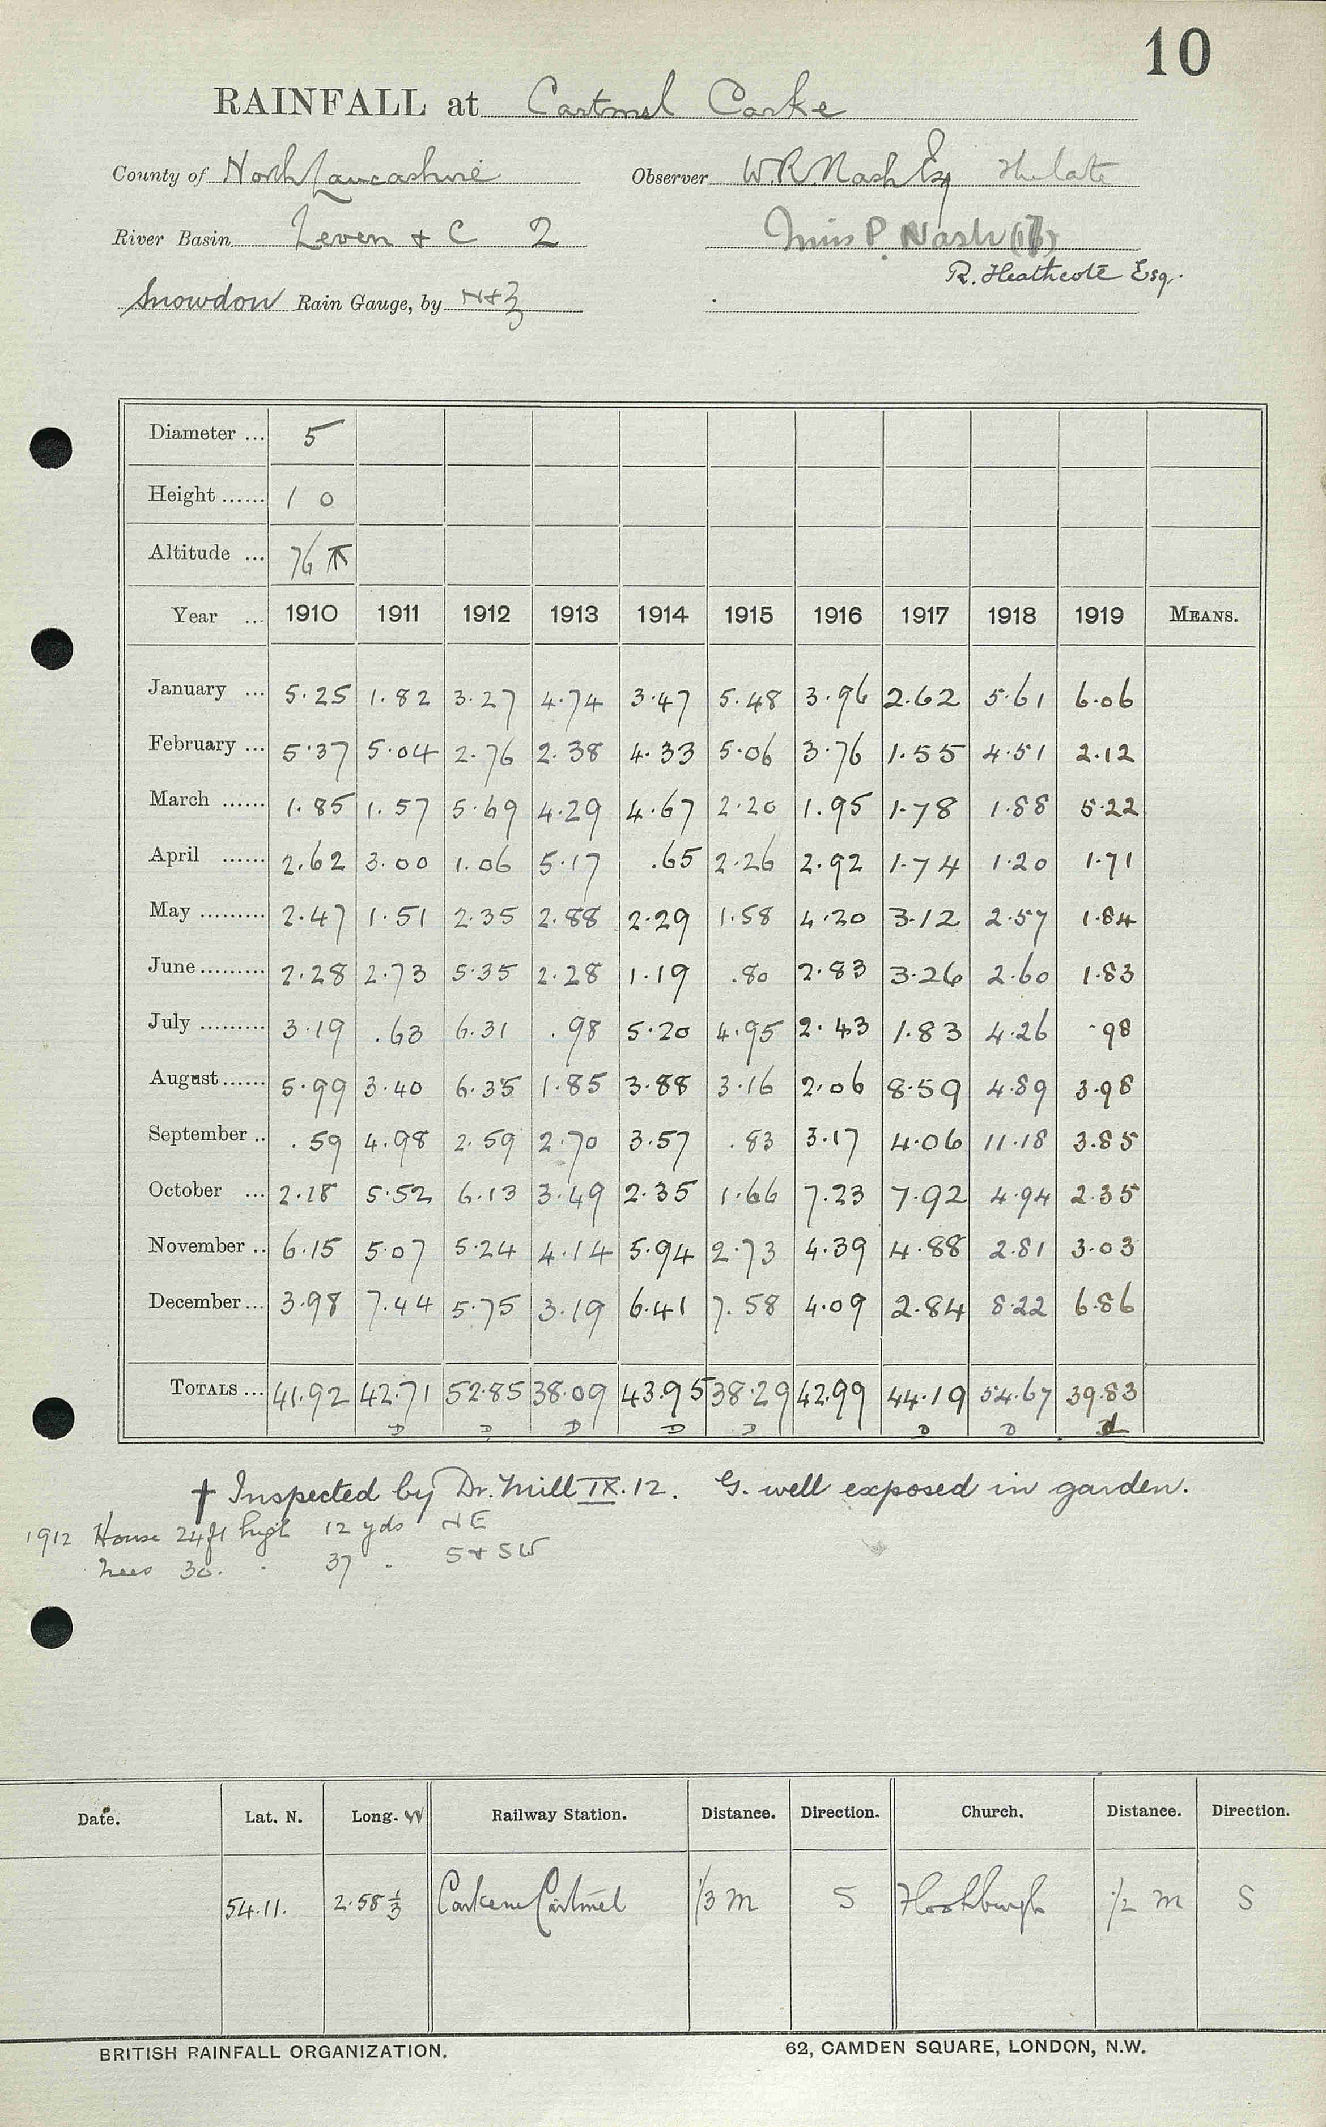 10
RAINFALL at Cartmel Carke
County of North Lancashire Observer W.R. Nash Esq The late
River Basin Leven & C 2 Miss P. Nash
R. Heathcote Esq.
Snowdon Rain Gauge, by N&Z
Diameter ... 5
Height ...... 1 0
Altitude ... 76
Year ... 1910 1911 1912 1913 1914 1915 1916 1917 1918 1919 MEANS.
January ... 5.25 1.82 3.27 4.74 3.47 5.48 3.96 2.62 5.61 6.06
February ... 5.37 5.04 2.76 2.38 4.33 5.06 3.76 1.55 4.51 2.12
March ...... 1.85 1.57 5.69 4.29 4.67 2.20 1.95 1.78 1.88 5.22
April ...... 2.62 3.00 1.06 5.17 .65 2.26 2.92 1.74 1.20 1.71
May ......... 2.47 1.51 2.35 2.88 2.29 1.58 4.20 3.12 2.57 1.84
June ......... 2.28 2.73 5.35 2.28 1.19 .80 2.83 3.26 2.60 1.83
July ......... 3.19 .63 6.31 .98 5.20 4.95 2.43 1.83 4.26 .98
August ...... 5.99 3.40 6.35 1.85 3.88 3.16 2.06 8.59 4.89 3.98
September .. .59 4.98 2.59 2.70 3.57 .83 3.17 4.06 11.18 3.85
October ... 2.18 5.52 6.13 3.49 2.35 1.66 7.23 7.92 4.94 2.35
November .. 6.15 5.07 5.24 4.14 5.94 2.73 4.39 4.88 2.81 3.03
December ... 3.98 7.44 5.75 3.19 6.41 7.58 4.09 2.84 8.22 6.86
TOTALS ... 41.92 42.71 52.85 38.09 43.95 38.29 42.99 44.19 54.67 39.83
D D D D D D D d
† Inspected by Dr. Mill IX.12. G. well exposed in garden.
1912 House 24ft high 12 yds NE
trees 30 . 37 . S & SW
Date. Lat. N. Long. W Railway Station. Distance. Direction. Church. Distance. Direction.
54.11. 2.58 1/3 Cark en Cartmel 1/3 m S Flookburgh 1/2 m S
BRITISH RAINFALL ORGANIZATION. 62, CAMDEN SQUARE, LONDON, N.W.